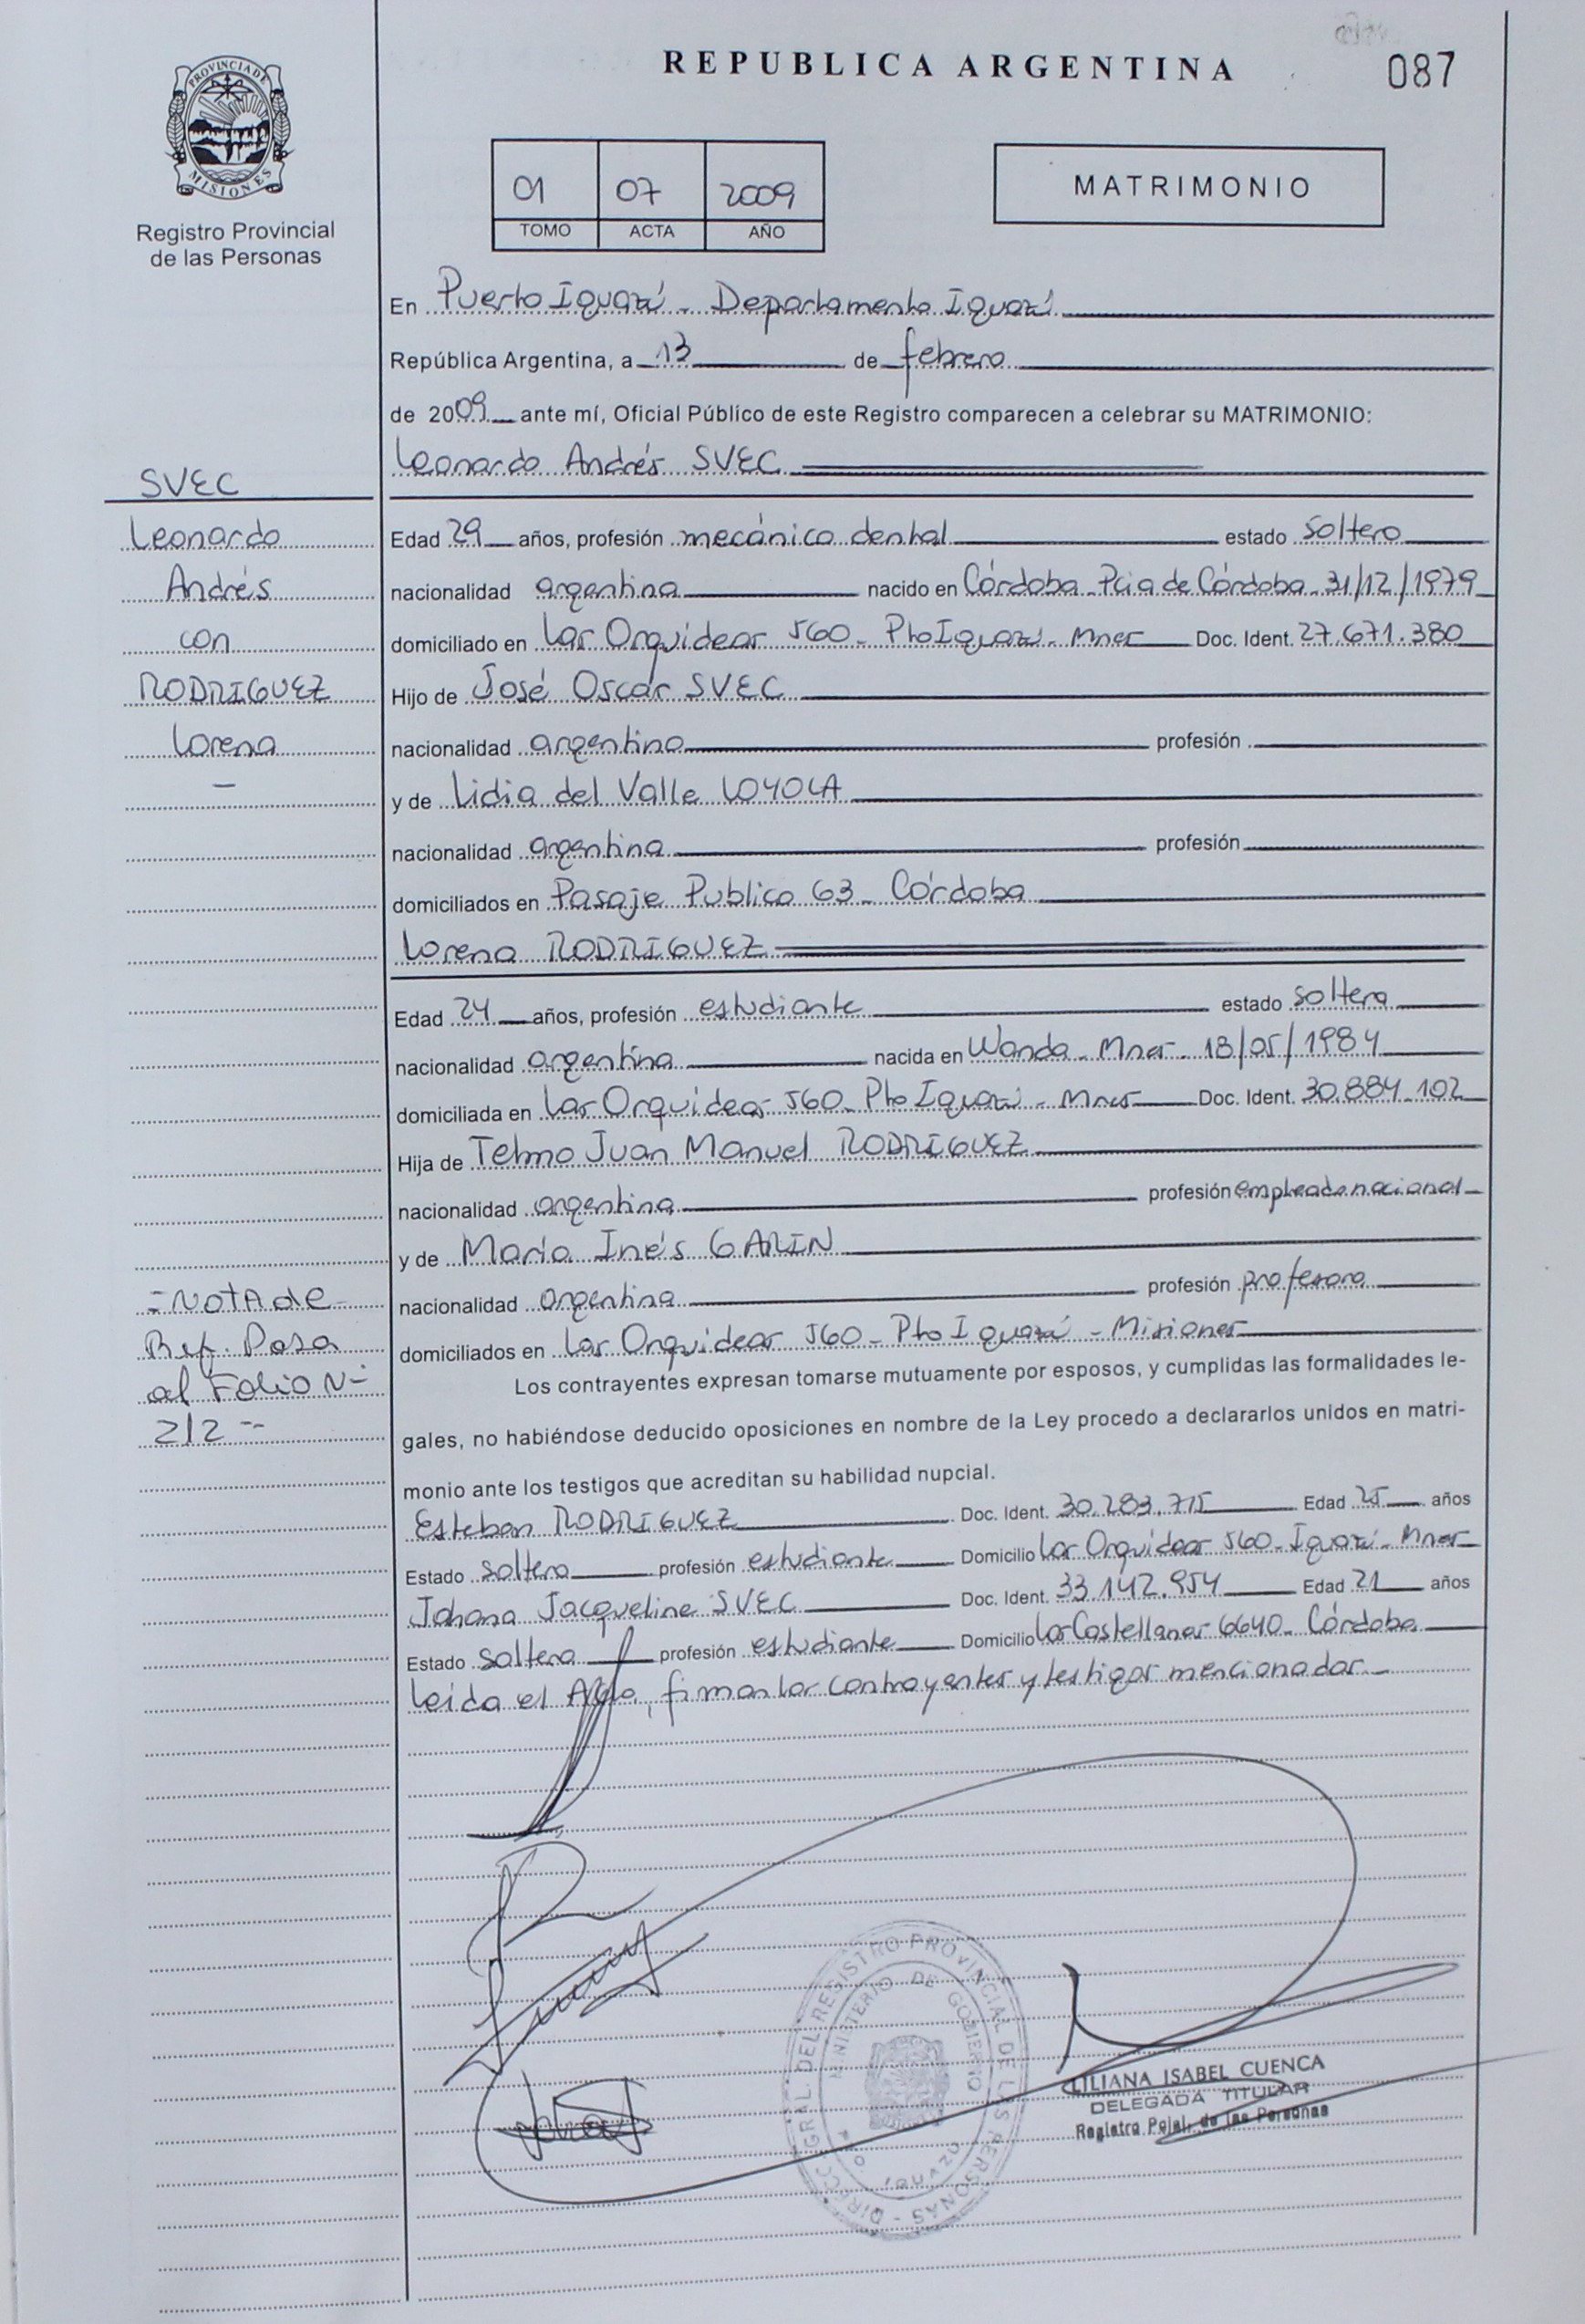 REPUBLICA ARGENTINA
087
PROVINCIA DE
MISIONES
Registro Provincial
de las Personas
01 07 2009
TOMO ACTA AÑO
MATRIMONIO
En Puerto Iguazú - Departamento Iguazú
República Argentina, a 13 de febrero
de 2009 ante mí, Oficial Público de este Registro comparecen a celebrar su MATRIMONIO:
Leonardo Andrés SVEC
SVEC
Leonardo
Andrés
con
RODRIGUEZ
Lorena
Edad 29 años, profesión mecánico dental estado soltero
nacionalidad argentina nacido en Córdoba - Pcia de Córdoba - 31/12/1979
domiciliado en Las Orquideas 560 - Pto Iguazú - Mnes Doc. Ident. 27.671.380
Hijo de José Oscar SVEC
nacionalidad argentina profesión
y de Lidia del Valle LOYOLA
nacionalidad argentina profesión
domiciliados en Pasaje Publico 63 - Córdoba
Lorena RODRIGUEZ
Edad 24 años, profesión estudiante estado soltera
nacionalidad argentina nacida en Wanda - Mnes - 18/05/1984
domiciliada en Las Orquideas 560 - Pto Iguazú - Mnes Doc. Ident. 30.884.102
Hija de Telmo Juan Manuel RODRIGUEZ
nacionalidad argentina profesión empleado nacional
y de María Inés GARIN
nacionalidad argentina profesión profesora
domiciliados en Las Orquideas 560 - Pto Iguazú - Misiones
- NOTA de
Ref. Pasa
al Folio N-
212 --
Los contrayentes expresan tomarse mutuamente por esposos, y cumplidas las formalidades le-
gales, no habiéndose deducido oposiciones en nombre de la Ley procedo a declararlos unidos en matri-
monio ante los testigos que acreditan su habilidad nupcial.
Esteban RODRIGUEZ Doc. Ident. 30.283.715 Edad 25 años
Estado soltero profesión estudiante Domicilio Las Orquideas 560 - Iguazú - Mnes
Johana Jacqueline SVEC Doc. Ident. 33.142.954 Edad 21 años
Estado soltera profesión estudiante Domicilio Las Castellanas 6640 - Córdoba
Leida el Acta, firman los contrayentes y testigos mencionados
DIRECC. GRAL. DEL REGISTRO PROVINCIAL DE LAS PERSONAS -
MINISTERIO DE GOBIERNO
IGUAZU
LILIANA ISABEL CUENCA
DELEGADA TITULAR
Registro Pcial. de las Personas